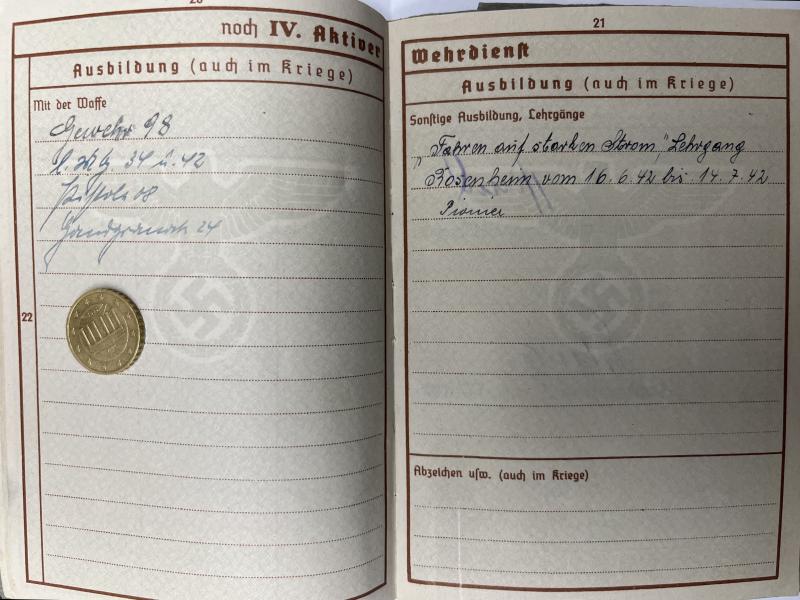 20
noch IV. Aktiver
Ausbildung (auch im Kriege)
Mit der Waffe
Gewehr 98
l. M.G. 34 u. 42
Pistole 08
Handgranate 24
22
21
Wehrdienst
Ausbildung (auch im Kriege)
Sonstige Ausbildung, Lehrgänge
„Fahren auf starken Strom," Lehrgang
Rosenheim vom 16.6.42 bis 14.7.42
Pionier
Abzeichen usw. (auch im Kriege)